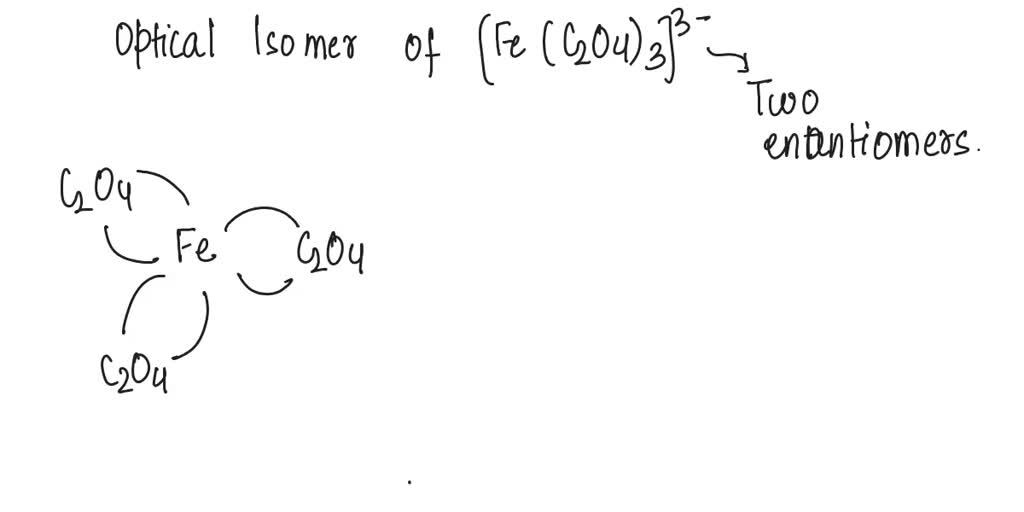 Optical Isomer of [Fe(C₂O₄)₃]³⁻ →
Two
enantiomers.
C₂O₄
Fe
C₂O₄
C₂O₄